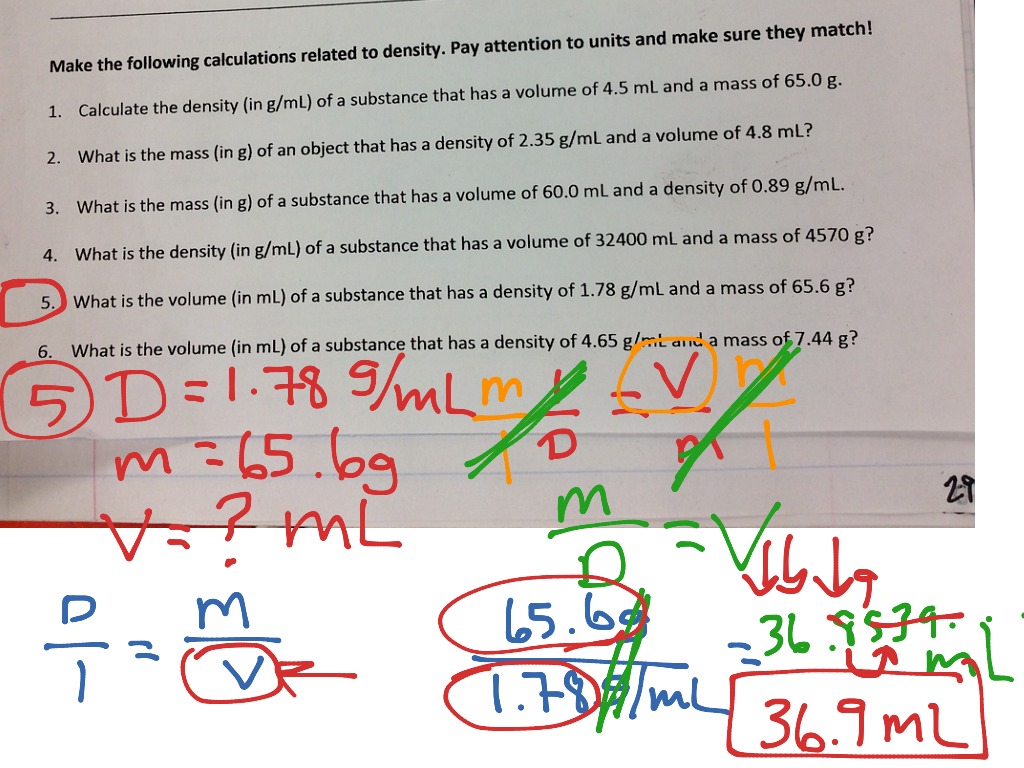 Make the following calculations related to density. Pay attention to units and make sure they match!
1. Calculate the density (in g/mL) of a substance that has a volume of 4.5 mL and a mass of 65.0 g.
2. What is the mass (in g) of an object that has a density of 2.35 g/mL and a volume of 4.8 mL?
3. What is the mass (in g) of a substance that has a volume of 60.0 mL and a density of 0.89 g/mL.
4. What is the density (in g/mL) of a substance that has a volume of 32400 mL and a mass of 4570 g?
5. What is the volume (in mL) of a substance that has a density of 1.78 g/mL and a mass of 65.6 g?
6. What is the volume (in mL) of a substance that has a density of 4.65 g/mL and a mass of 7.44 g?
5 D = 1.78 g/mL
m = 65.6g
V = ? mL
m/1 1/D = V/m m/1
29
m/D = V
D/1 = m/V
65.6g / 1.78 g/mL = 36.8539 mL
9
36.9 mL